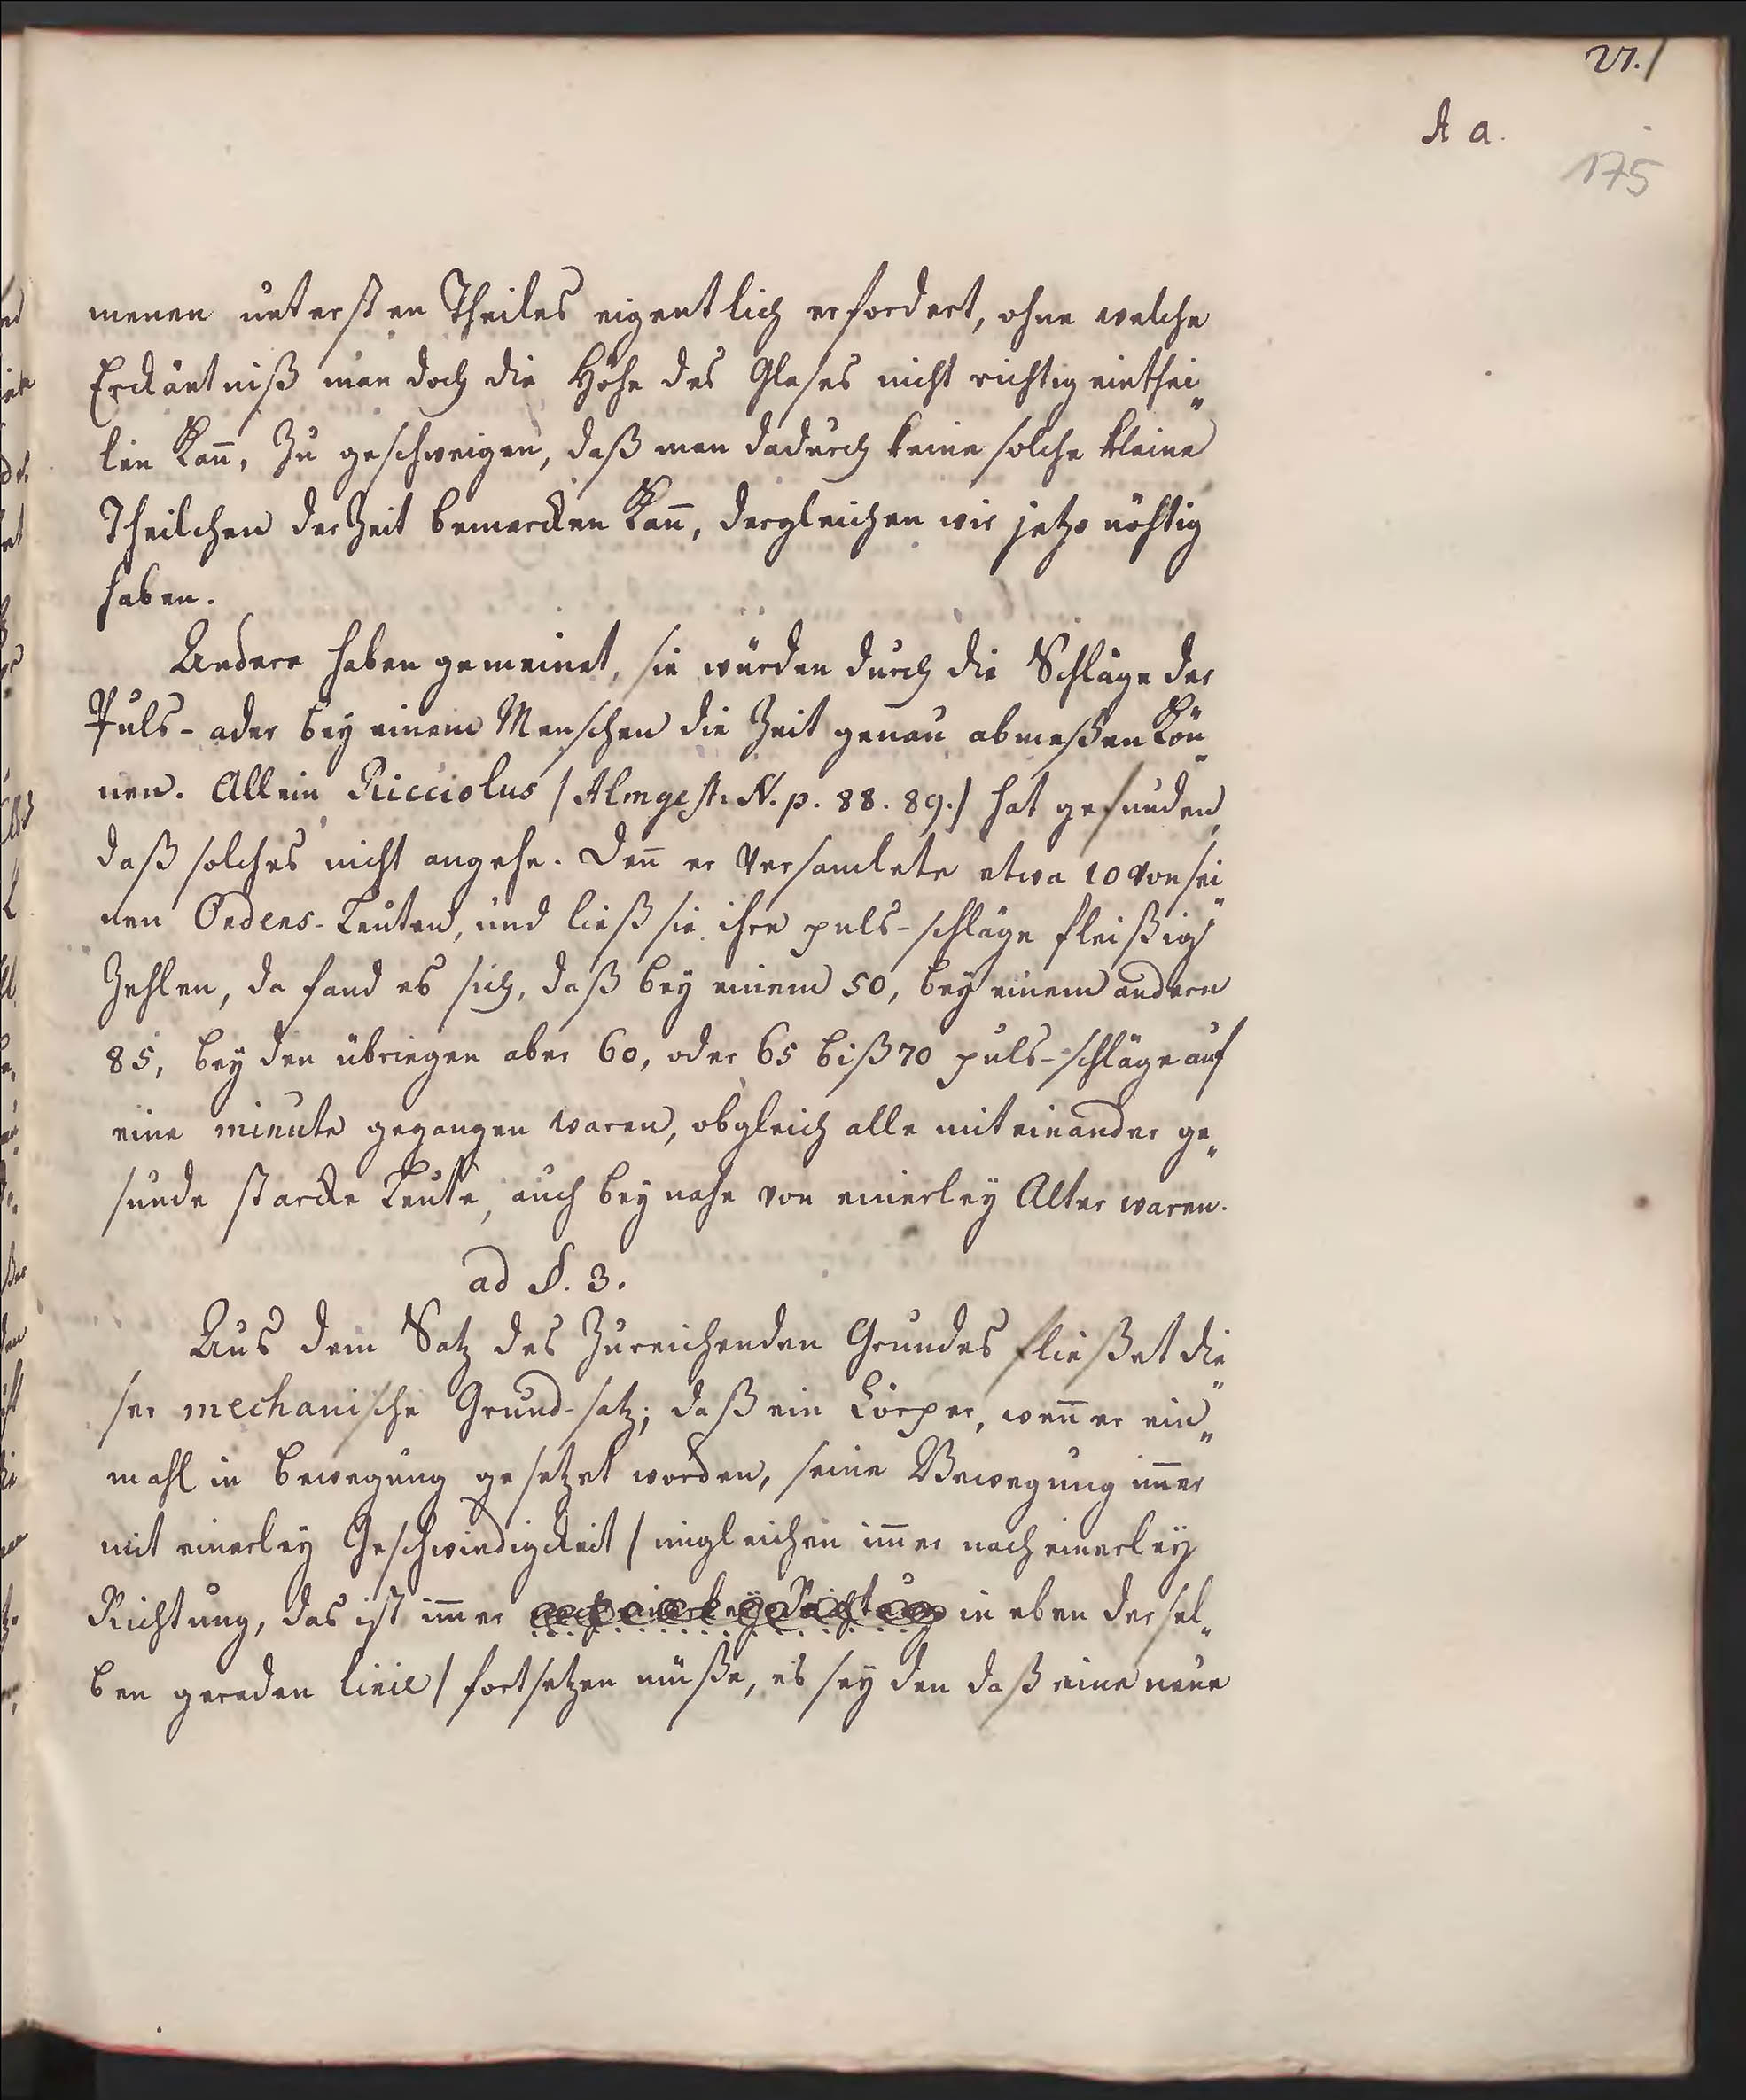 21.
A a.
175
menen untersten Theiles eigentlich erfordert, ohne welche
Erckäntniß man doch die Höhe des Glases nicht richtig einthei„
len kan̄, Zu geschweigen, daß man dadurch keine solche kleine
Theilchen der Zeit bemercken kan̄, dergleichen wir jetzo nöhtig
haben.
Andere haben gemeinet, sie würden durch die Schläge der
Puls-ader bey einem Menschen die Zeit genau abmeßen kön„
nen. Allein Ricciolus / Almgest. N. p. 88. 89./ hat gefunden,
daß solches nicht angehe. Den̄ er Versamlete etwa 10 von sei„
nen Ordens-Leuten, und ließ sie ihre puls-schläge fleißig
Zehlen, da fand es sich, daß bey einem 50, bey einem andern
85, bey den übriegen aber 60, oder 65 biß 70 puls-schläge auf
eine minute gegangen waren, obgleich alle mit einander ge„
sunde starcke Leute, auch bey nahe von einerley Alter waren.
ad §. 3.
Aus dem Satz des Zureichenden Grundes fließet die„
ser mechanische Grund-satz; daß ein Cörper, wen̄ er ein„
mahl in bewegung gesetzet worden, seine Bewegung im̄er
mit einerley Geschwindigckeit / imgleichen im̄er nach einerley
Richtung, das ist im̄er nach einerley Richtung in eben dersel„
ben geraden linie / fortsetzen müße, es sey den daß eine neue